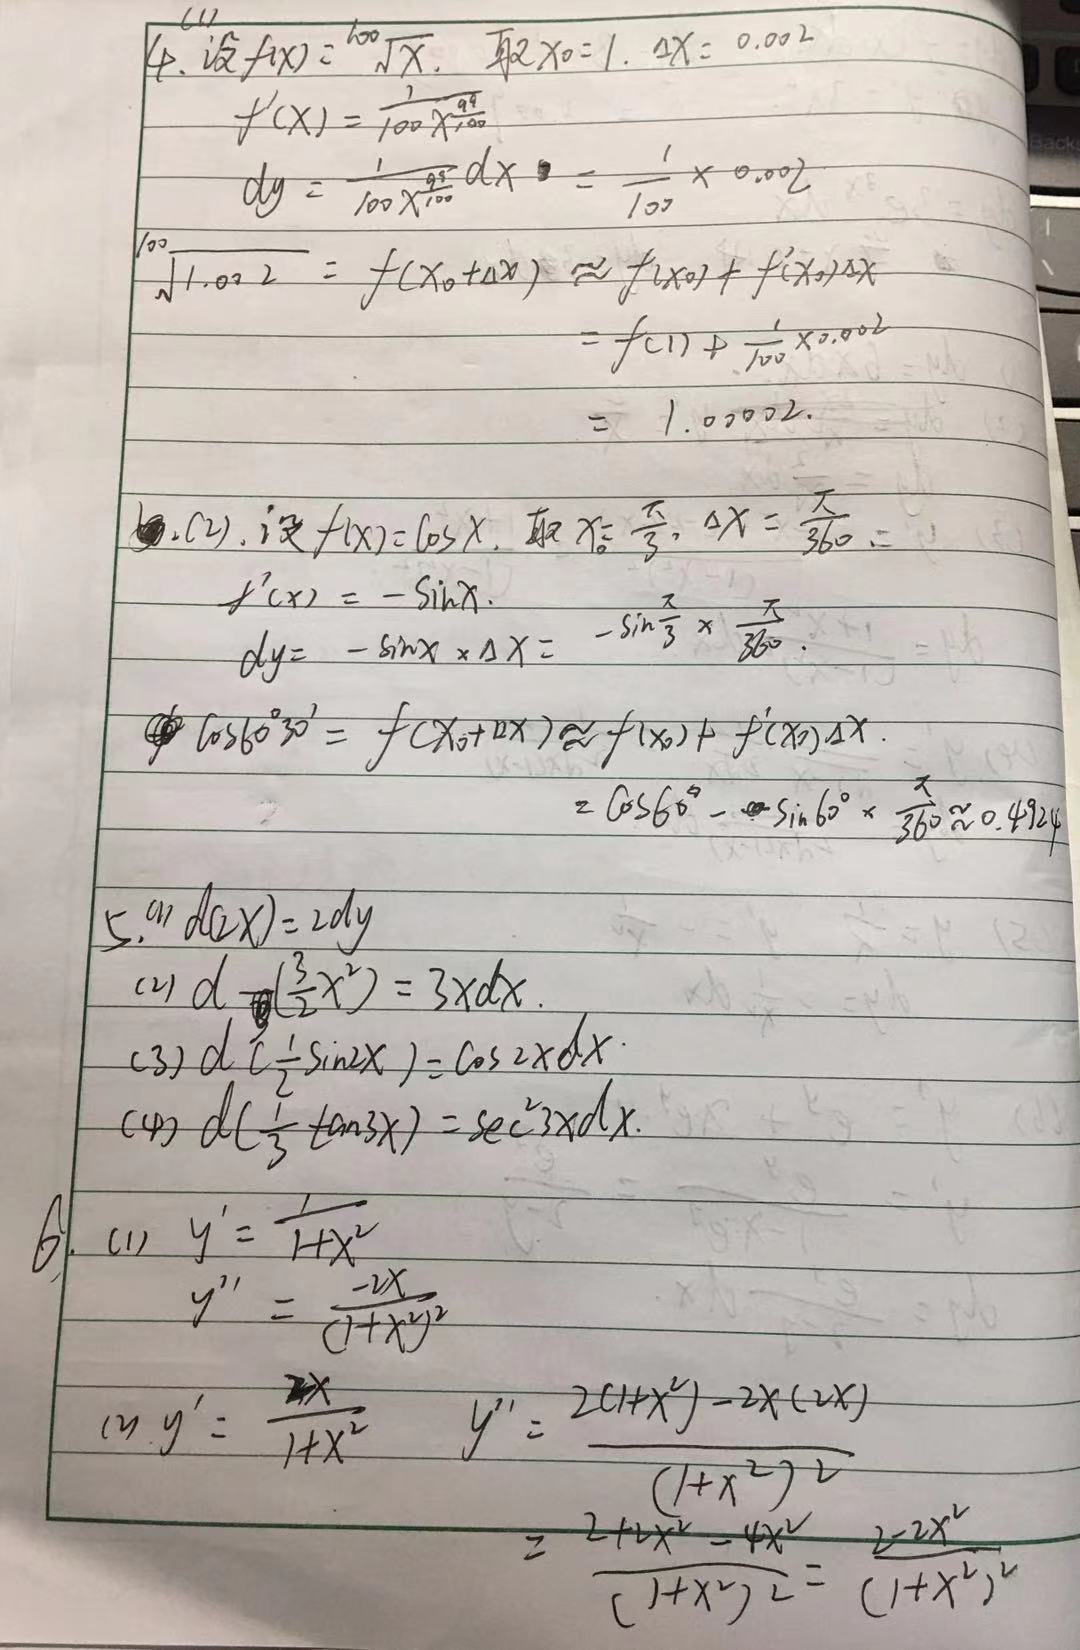 4.(1) 设f(x)=¹⁰⁰√x. 取x₀=1. Δx=0.002
f'(x)=1/(100x^(99/100))
dy=1/(100x^(99/100))dx=1/100×0.002
¹⁰⁰√1.002=f(x₀+Δx)≈f(x₀)+f'(x₀)Δx
=f(1)+1/100×0.002
=1.00002.
(2).设f(x)=cosx. 取x₀=π/3. Δx=π/360.
f'(x)=-sinx.
dy=-sinx×Δx=-sinπ/3×π/360.
cos60°30'=f(x₀+Δx)≈f(x₀)+f'(x₀)Δx.
=cos60°-sin60°×π/360≈0.4924
5.(1) d(2x)=2dy
(2) d(3/2x²)=3xdx.
(3) d(1/2sin2x)=cos2xdx.
(4) d(1/3tan3x)=sec²3xdx.
6.(1) y'=1/(1+x²)
y''=-2x/(1+x²)²
(2) y'=2x/(1+x²) y''=(2(1+x²)-2x(2x))/(1+x²)²
=(2+2x²-4x²)/(1+x²)²=(2-2x²)/(1+x²)²